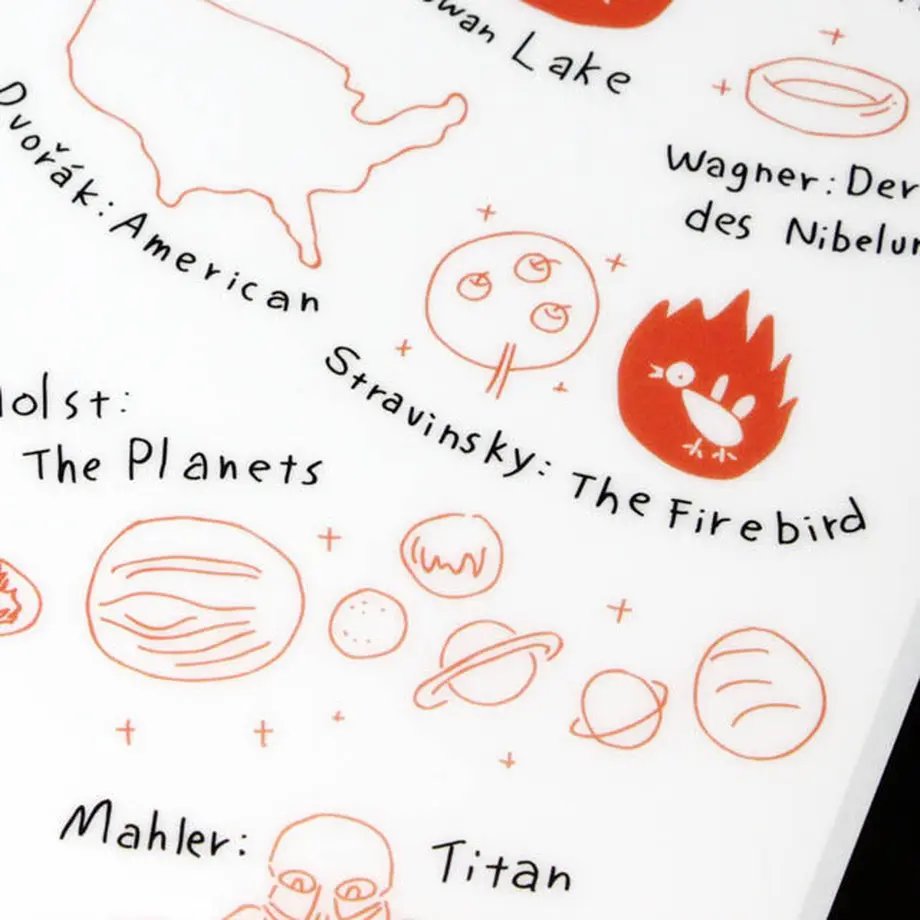 Lake
Wagner: Der
des
Dvořák: American
Stravinsky: The Firebird
The Planets
Mahler: Titan